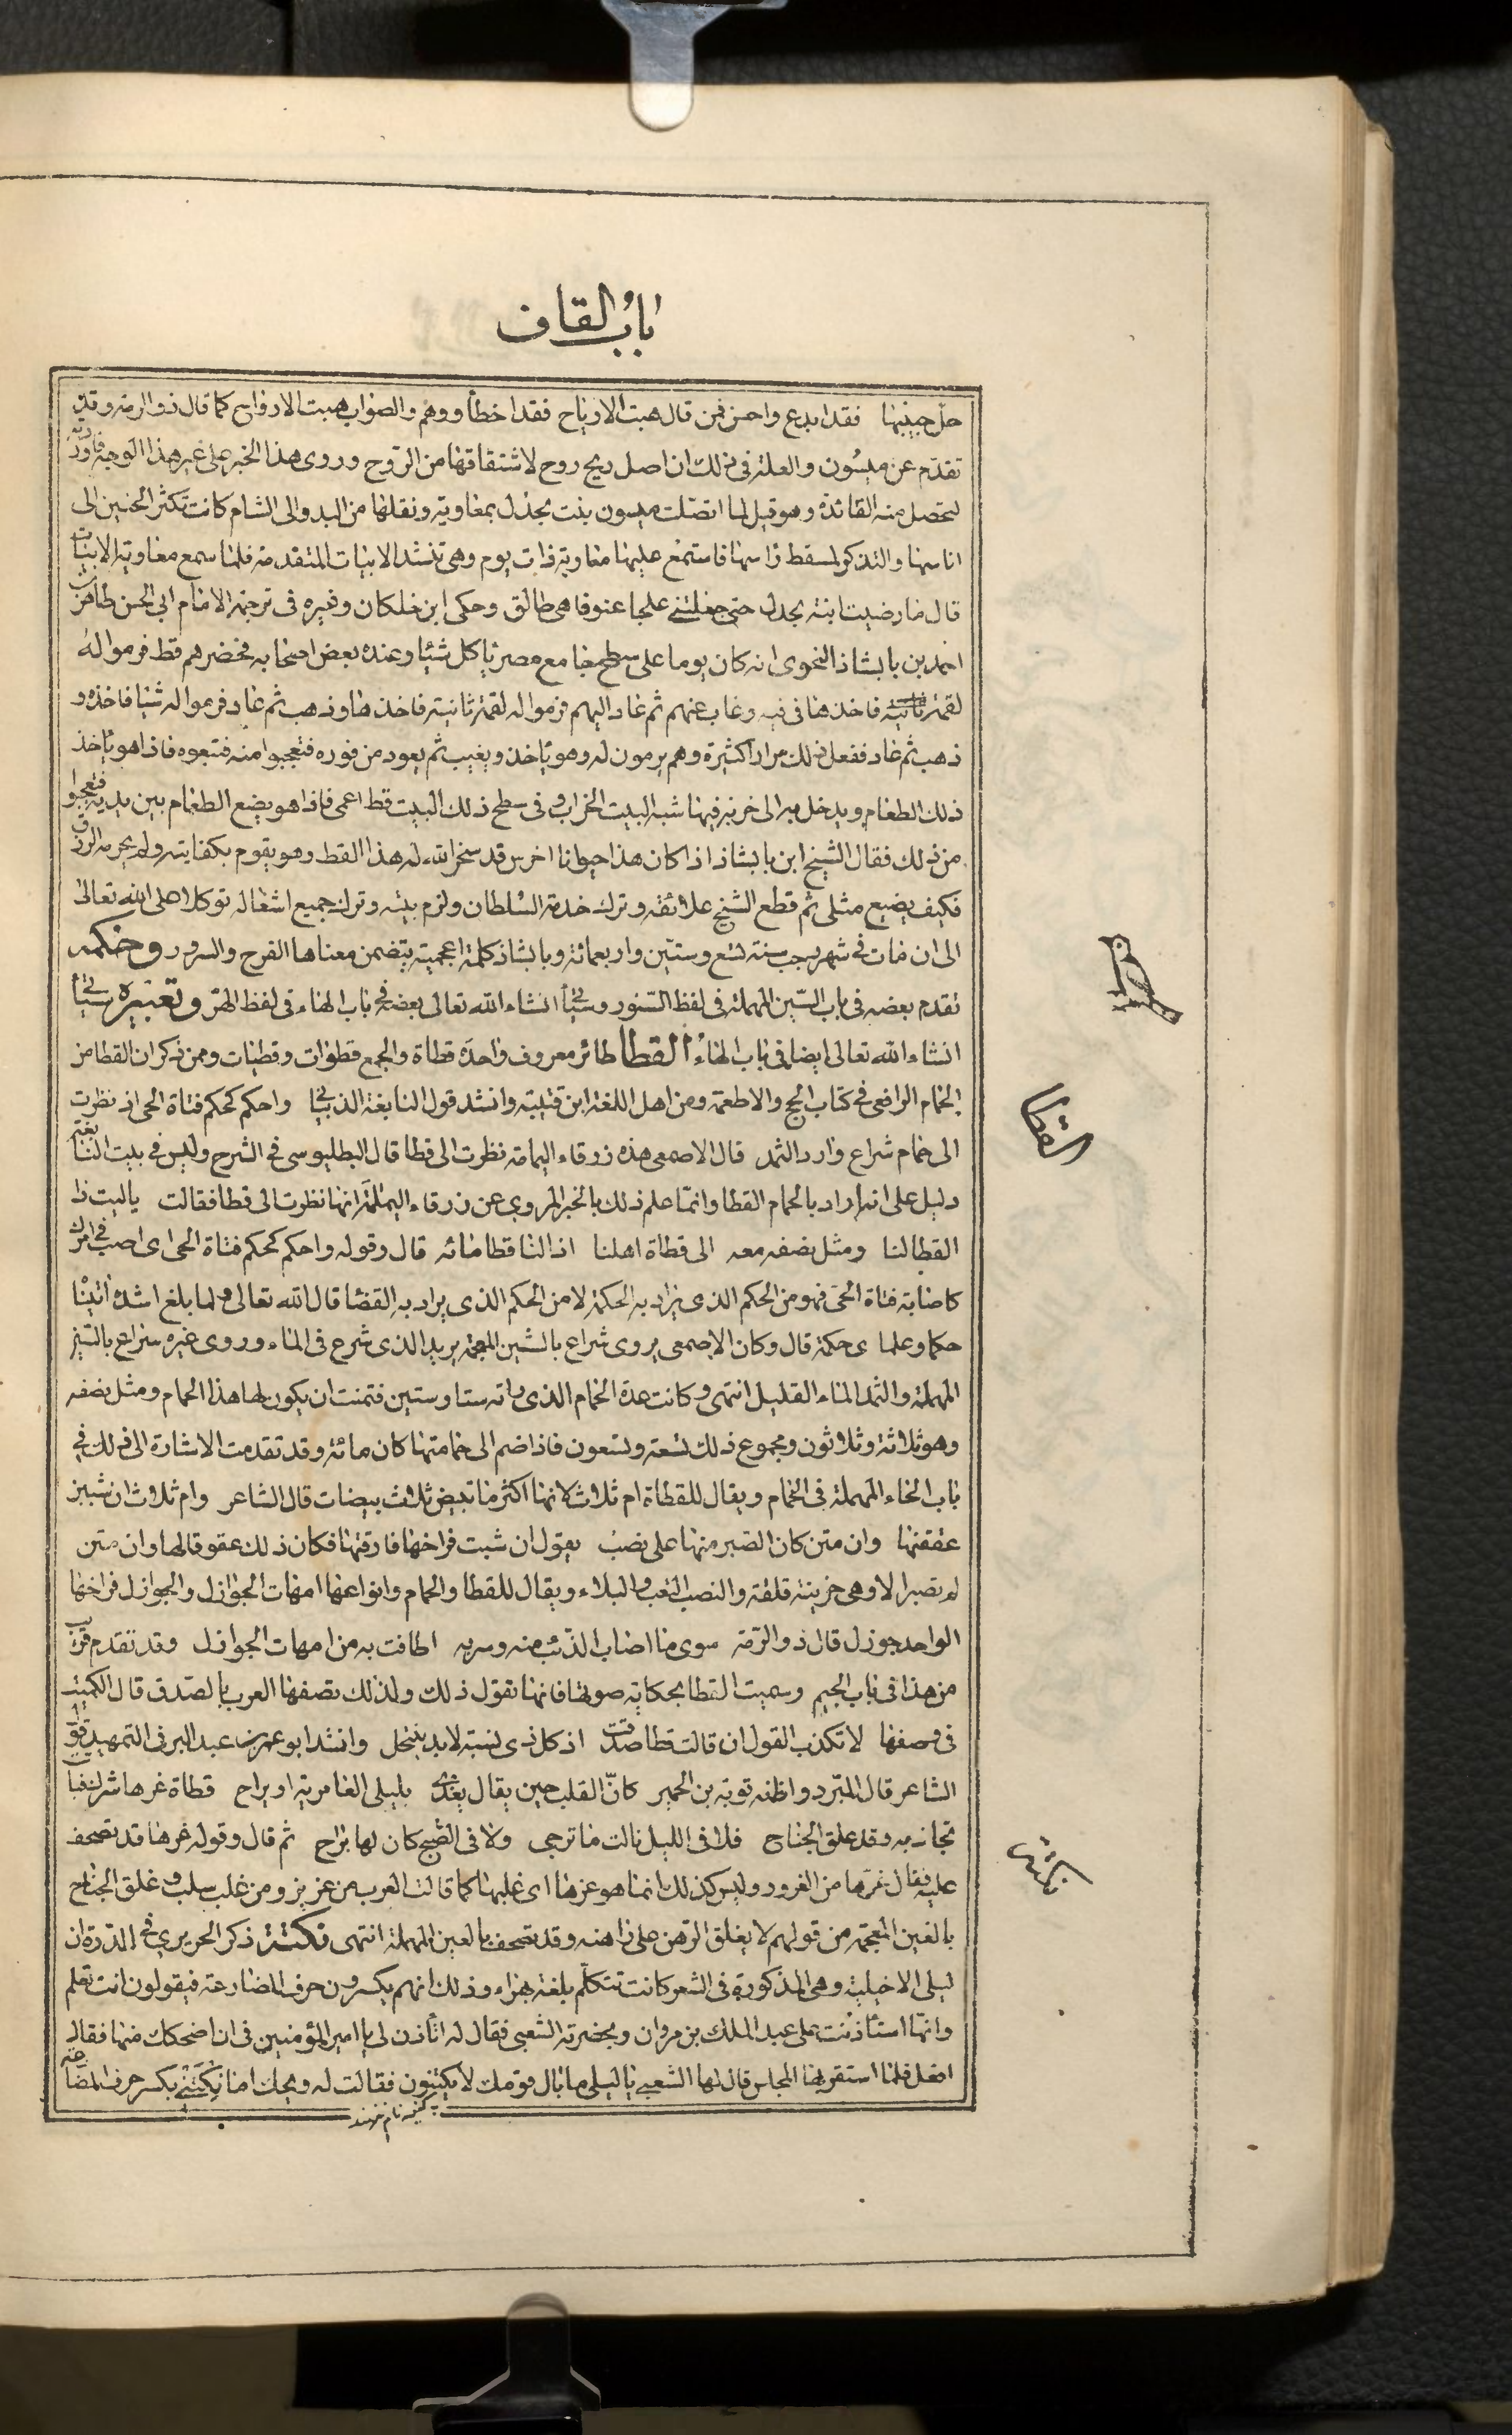 باب القاف
حل حبيبها فقد ابدع واحسن فمن قال هبت الارياح فقد اخطأ ووهم والصواب هبت الارواح كما قال ذو الرمة وقد
تقدم عن ميسون والعلة في ذلك ان اصل ريح روح لاشتقاقها من الروح وروى هذا الخبر على غير هذا الوجه فاوردته
لتحصل منه الفائدة وهو قيل لما اتصلت ميسون بنت بحدل بمعاوية ونقلها من البدو الى الشام كانت تكثر الحنين الى
اناسها والتذكر لمسقط راسها فاستمع عليها معاوية ذات يوم وهي تنشد الابيات المتقدمة فلما سمع معاوية الابيات
قال ما رضيت ابنة بحدل حتى جعلتني علجا عنوفا هي طالق وحكى ابن خلكان وغيره في ترجمة الامام ابي الحسن طاهر بن
احمد بن بابشاذ النحوي انه كان يوما على سطح جامع مصر ياكل شيئا وعنده بعض اصحابه فحضرهم قط فرموا له
لقمة فاخذها في فيه وغاب عنهم ثم عاد اليهم فرموا له لقمة ثانية فاخذها وذهب ثم عاد فرموا له شيئا فاخذه و
ذهب ثم عاد ففعل ذلك مرارا كثيرة وهم يرمون له وهو ياخذ ويغيب ثم يعود من فوره فتعجبوا منه فتبعوه فاذا هو ياخذ
ذلك الطعام ويدخل به الى خربة فيها شبه البيت الخراب وفي سطح ذلك البيت قط اعمى فاذا هو يضع الطعام بين يديه فتعجبوا
من ذلك فقال الشيخ ابن بابشاذ اذا كان هذا حيوانا اخرس قد سخر الله له هذا القط وهو يقوم بكفايته ولم يحرمه الرزق
فكيف يضيع مثلي ثم قطع الشيخ علائقه وترك خدمة السلطان ولزم بيته وترك جميع اشغاله توكلا على الله تعالى
الى ان مات في شهر رجب سنة تسع وستين واربعمائة وبابشاذ كلمة اعجمية يتضمن معناها الفرح والسرور وحكمه
تقدم بعضه في باب السين المهملة في لفظ السنور وسيأتي انشاء الله تعالى بعضه في باب الهاء في لفظ الهر وتعبيره سيأتي
انشاء الله تعالى ايضا في باب الهاء القطا طائر معروف واحده قطاة والجمع قطوات وقطيات وممن ذكر ان القطا من
الحمام الرافعي في كتاب الحج والاطعمة ومن اهل اللغة ابن قتيبة وانشد قول النابغة الذبياني واحكم كحكم فتاة الحي اذ نظرت
الى حمام شراع وارد الثمد قال الاصمعي هذه زرقاء اليمامة نظرت الى قطا قال البطليوسي في الشرح وليس في بيت النابغة
دليل على انه اراد بالحمام القطا وانما علم ذلك بالخبر المروي عن زرقاء اليمامة انها نظرت الى قطا فقالت ياليت ذا
القطا لنا ومثل نصفه معه الى قطاة اهلنا اذا لنا قطا مائه قال وقوله واحكم كحكم فتاة الحي اي اصب في امرك
كاصابة فتاة الحي فهو من الحكم الذي يراد به الحكمة لا من الحكم الذي يراد به القضا قال الله تعالى ولما بلغ اشده اتيناه
حكما وعلما اي حكمة قال وكان الاصمعي يروي شراع بالشين المعجمة يريد الذي شرع في الماء وروى غيره سراع بالسين
المهملة والثمد الماء القليل انتهى وكانت عدة الحمام الذي راته ستا وستين فتمنت ان يكون لها هذا الحمام ومثل نصفه
وهو ثلاثة وثلاثون ومجموع ذلك تسعة وتسعون فاذا ضم الى حمامتها كان مائة وقد تقدمت الاشارة الى ذلك في
باب الحاء المهملة في الحمام ويقال للقطاة ام ثلاث لانها اكثر ما تبيض ثلاث بيضات قال الشاعر وام ثلاث ان شببن
عققنها وان متن كان الصبر منها على نصب يقول ان شبت فراخها فارقتها فكان ذلك عقوقا لها وان متن
لم تصبر الا وهي حزينة قلقة والنصب التعب والبلاء ويقال للقطا والحمام وانواعها امهات الجوازل والجوازل فراخها
الواحد جوزل قال ذو الرمة سوى ما اصاب الذئب منه وسربه اطافت به من امهات الجوازل وقد تقدم قريب
من هذا في باب الجيم وسميت القطا بحكاية صوتها فانها تقول ذلك ولذلك تصفها العرب بالصدق قال الكميت
في وصفها لا تكذب القول ان قالت قطا صدقت اذ كل ذي نسبة لابد ينتحل وانشد ابو عمر بن عبد البر في التمهيد قول
الشاعر قال المبرد واظنه توبة بن الحمير كان القلب حين يقال يغدى بليلى العامرية او يراح قطاة غرها شرك فباتت
تجاذبه وقد علق الجناح فلا في الليل نالت ما ترجى ولا في الصبح كان لها براح ثم قال وقوله غرها قد تصحف
عليه فقال غرها من الغرور وليس كذلك انما هو عزها اي غلبها كما قالت العرب من عز بز ومن غلب سلب وغلق الجناح
بالغين المعجمة من قولهم لا يغلق الرهن على راهنه وقد تصحف بالعين المهملة انتهى نكتة ذكر الحريري في الدرة ان
ليلى الاخيلية وهي المذكورة في الشعر كانت تتكلم بلغة بهراء وذلك انهم يكسرون حرف المضارعة فيقولون انت تعلم
وانها استأذنت على عبد الملك بن مروان وبحضرته الشعبي فقال له اتأذن لي يا امير المؤمنين في ان اضحكك منها فقال
افعل فلما استقر بها المجلس قال لها الشعبي يا ليلى ما بال قومك لا يكتنون فقالت له ويحك اما نكتني بكسر حرف المضارعة
القطا
نكتة